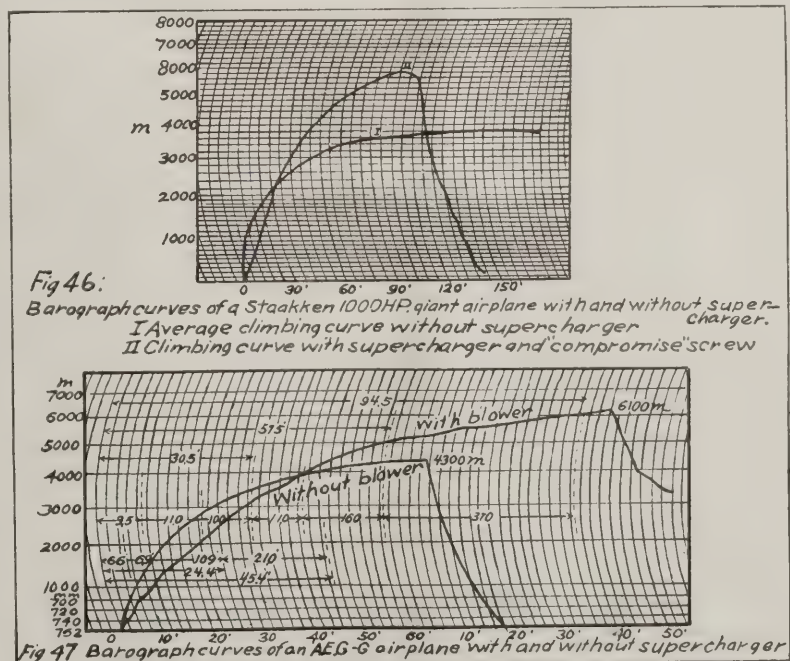 8000
7000
8000
5000
m 4000
3000
2000
1000
II
I
0 30' 60' 90' 120' 150'
Fig 46:
Barograph curves of a Staakken 1000HP. giant airplane with and without super-
charger.
I Average climbing curve without supercharger
II Climbing curve with supercharger and "compromise" screw
m
7000
6000
5000
4000
3000
2000
1000
700
720
740
762
94.5
57.5
30.5
with blower
6100m
4300m
Without blower
9.5 11.0 10.0 11.0 16.0 37.0
6.6 6.9 10.9 21.0
24.4
45.4
0 10' 20' 30' 40' 50' 60' 10' 20' 30' 40' 50'
Fig 47 Barograph curves of an AEG-G airplane with and without supercharger